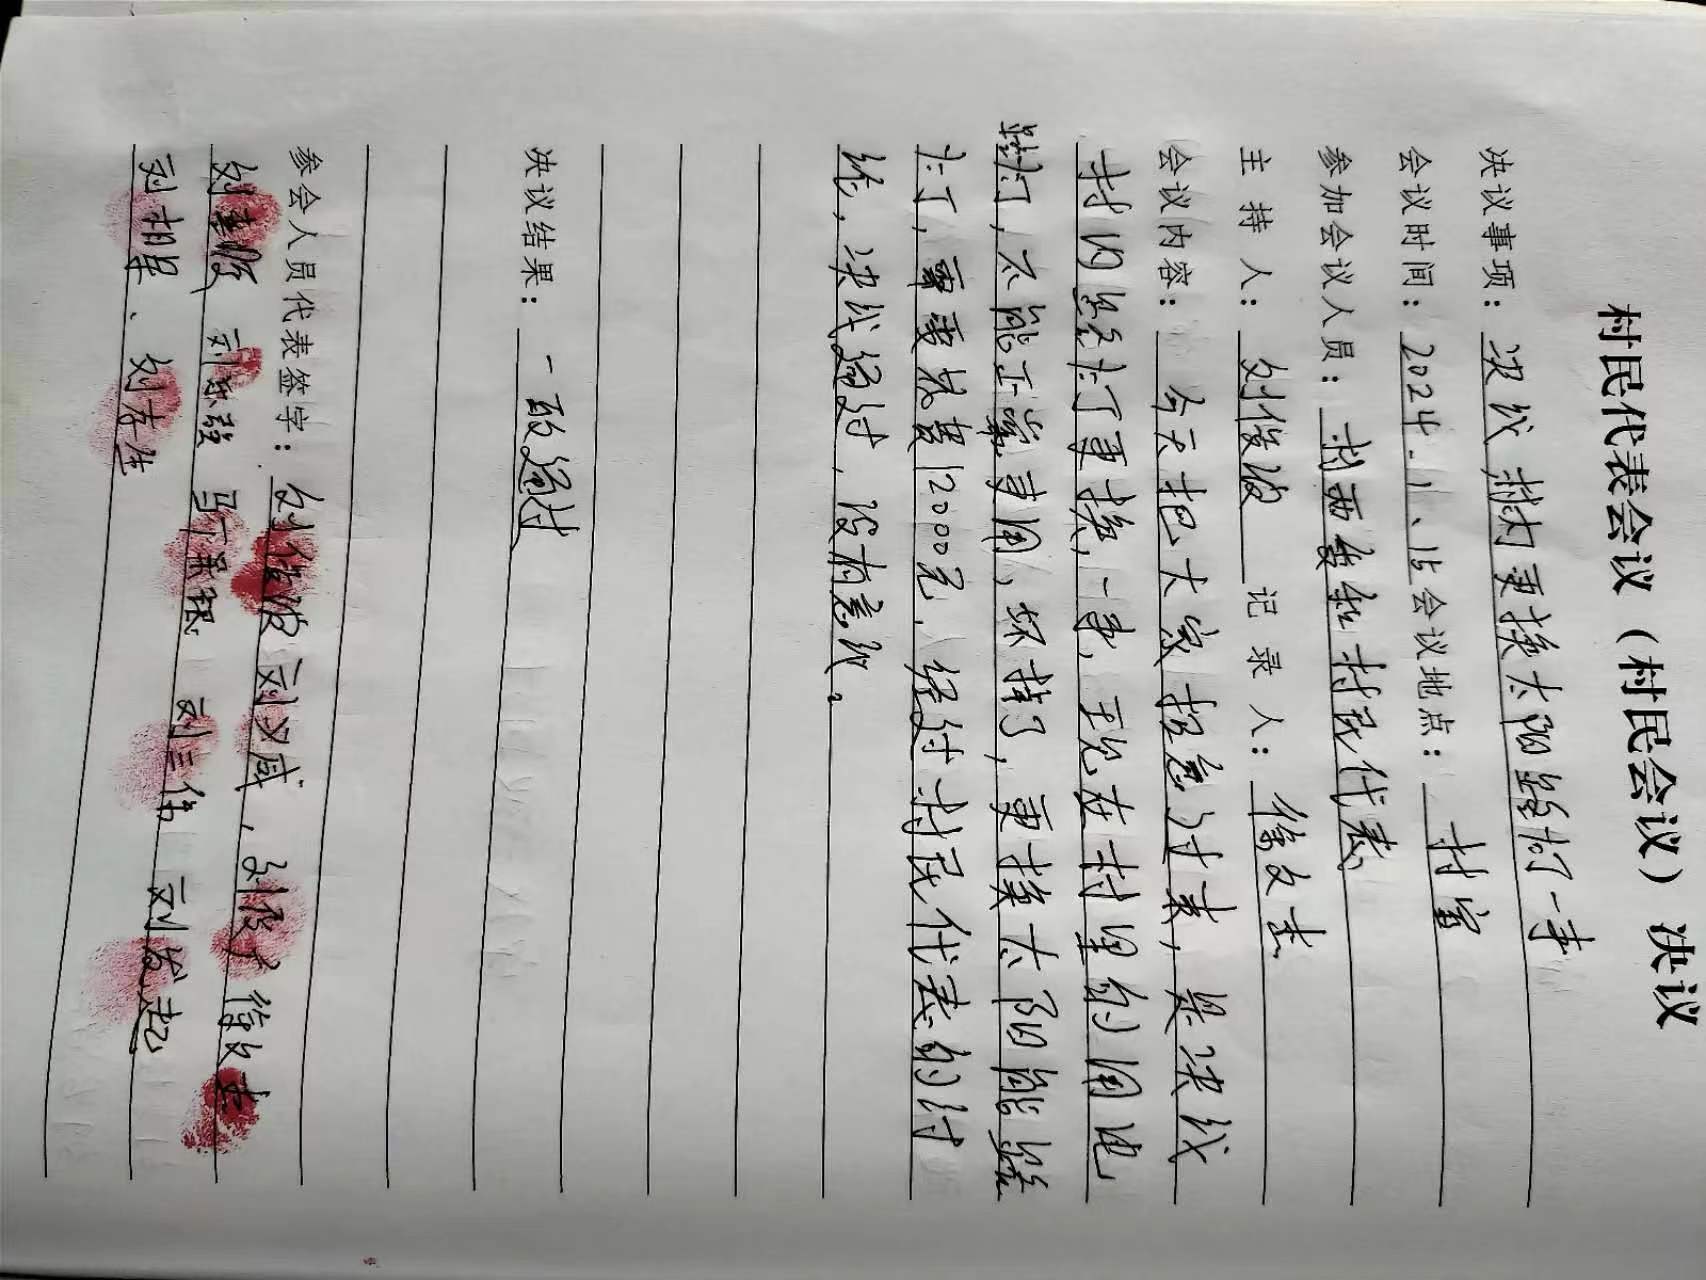 村民代表会议（村民会议）决议
决议事项：决议 村 更换太阳路灯一事
会议时间：2024.1、15 会议地点：村室
参加会议人员：村两委和村民代表
主持人：刘俊波 记录人：徐文志
会议内容：今天把大家招急过来，是决议
村内路灯更换，一事，现在村里的用电
路灯，不能正常使用，坏掉了，更换太阳能路
灯，需要花费12000元，经过村民代表的讨
论，决议通过，没有意议。
决议结果：一致通过
参会人员代表签字：刘俊波 刘义威，刘俊 徐文
刘 刘 马 银 刘三伟 刘发起
刘相星、刘春生